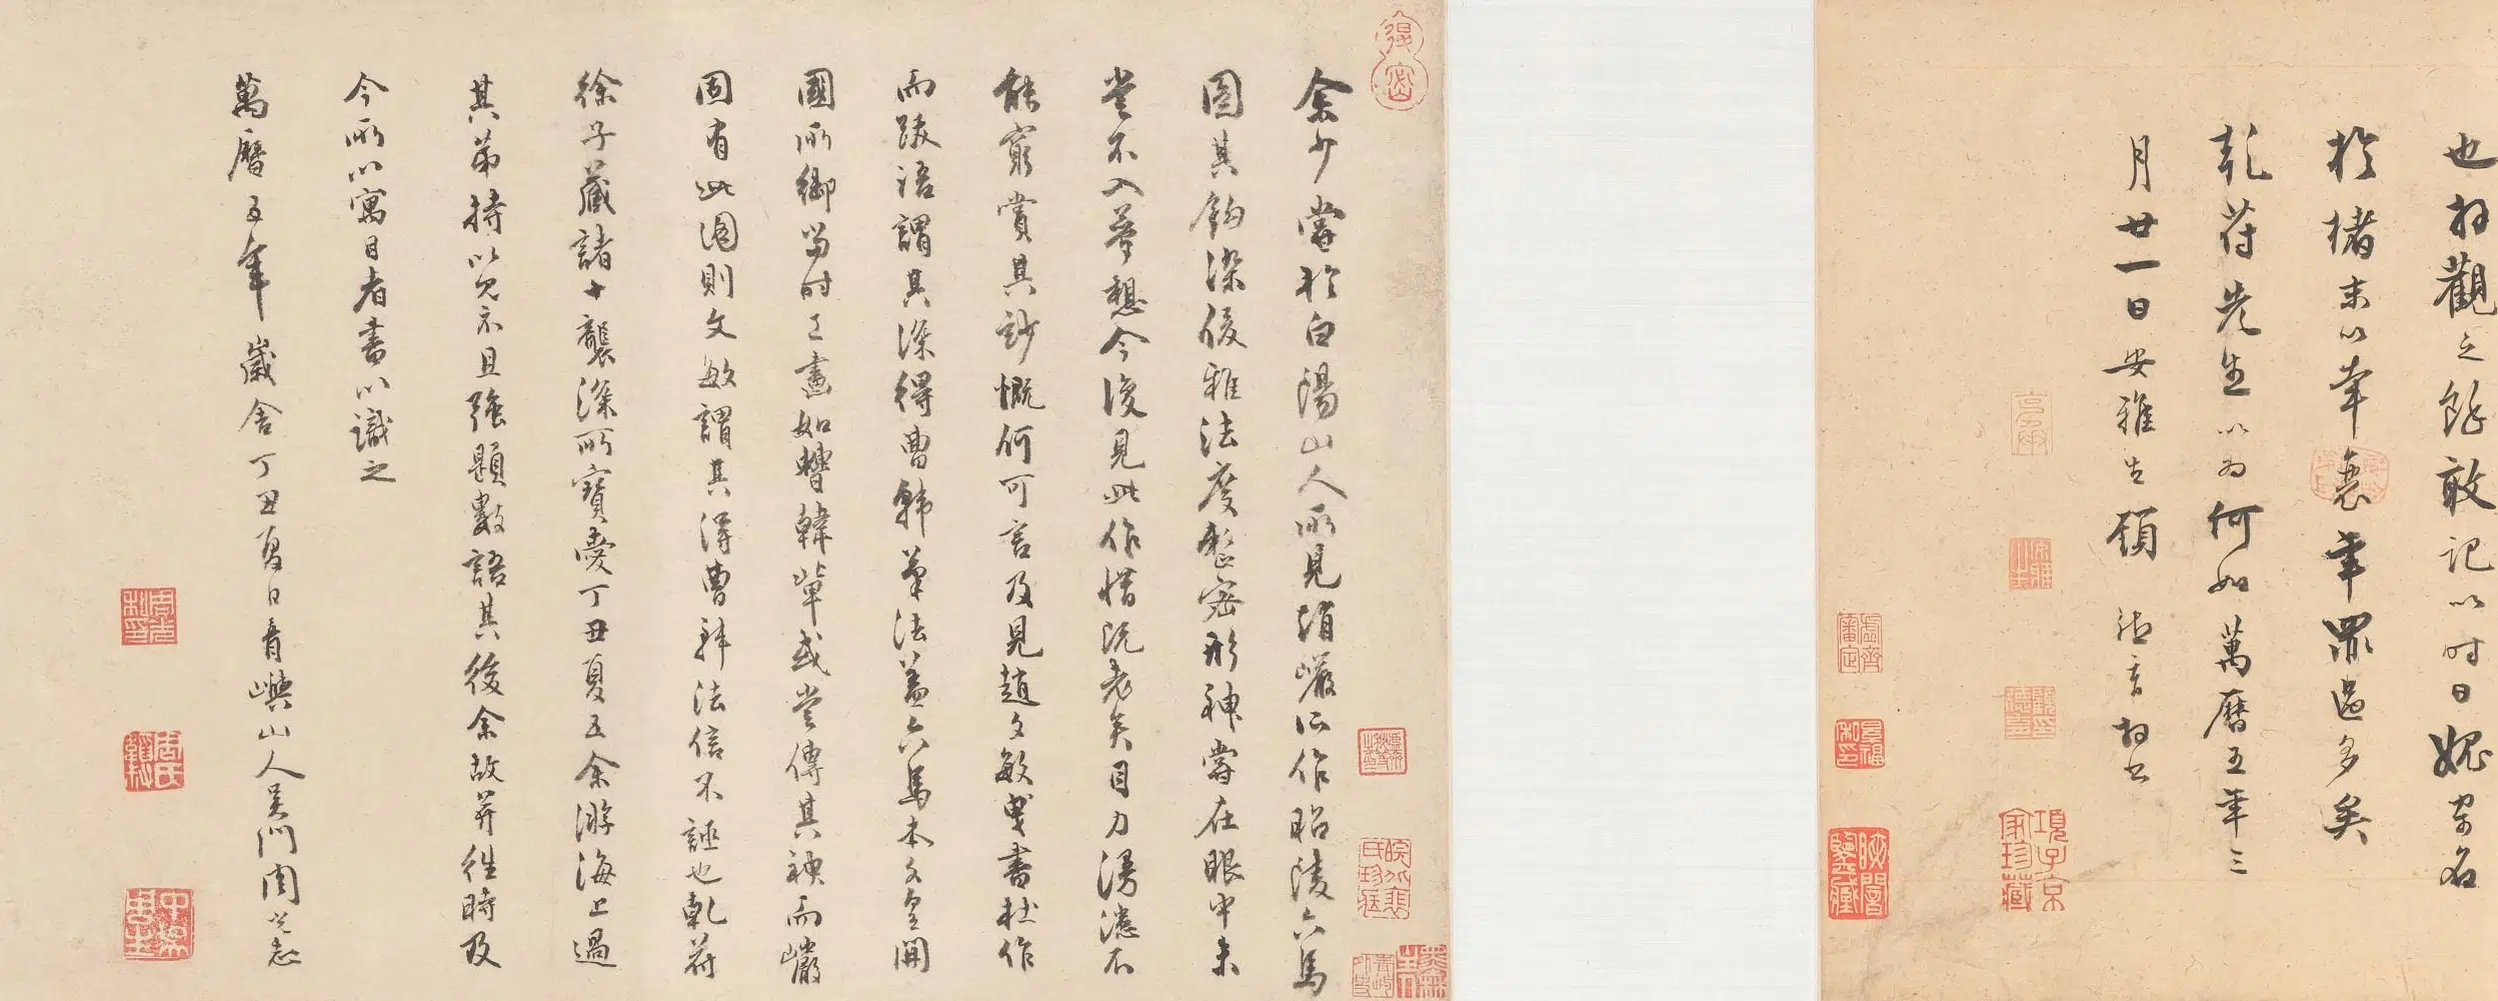 也拜觀之餘敢記以時日媿牢名
於楮末以幸襄幸罪過多矣
乾荷先生以为何如萬曆五年三
月廿一日安雅生顧德育拜书
余少嘗於白陽山人所見趙巖所作昭陵六馬
圖其鈎染後雅法度整密形神嘗在眼中未
嘗不入夢想今復見此作惜沉老矣目力漫漶不
能窮賞其妙慨何可言及見趙文敏曳書杜作
而跋語謂其深得曹韩筆法蓋六馬本文皇開
國所御當时之畫如曹韓輩或嘗傳其神而巖
固有此圖則文敏謂其得曹韩法信不誣也乾荷
徐子藏諸十襲深所寶愛丁丑夏五余游海上過
其弟持以見示且強題數語其後余故并往時及
今所以寓目者書以識之
萬曆五年歲舍丁丑夏日青嶼山人吴門周
虛齋審定
項子京家珍藏
顧德育